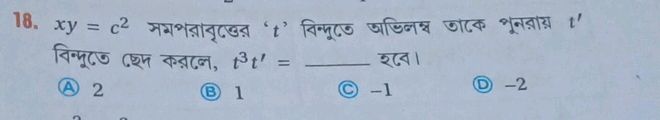 18. xy = c² সমপরাবৃত্তের ‘t’ বিন্দুতে অভিলম্ব তাকে পুনরায় t′
বিন্দুতে ছেদ করলে, t³t′ = ______ হবে।
Ⓐ 2 Ⓑ 1 Ⓒ –1 Ⓓ –2